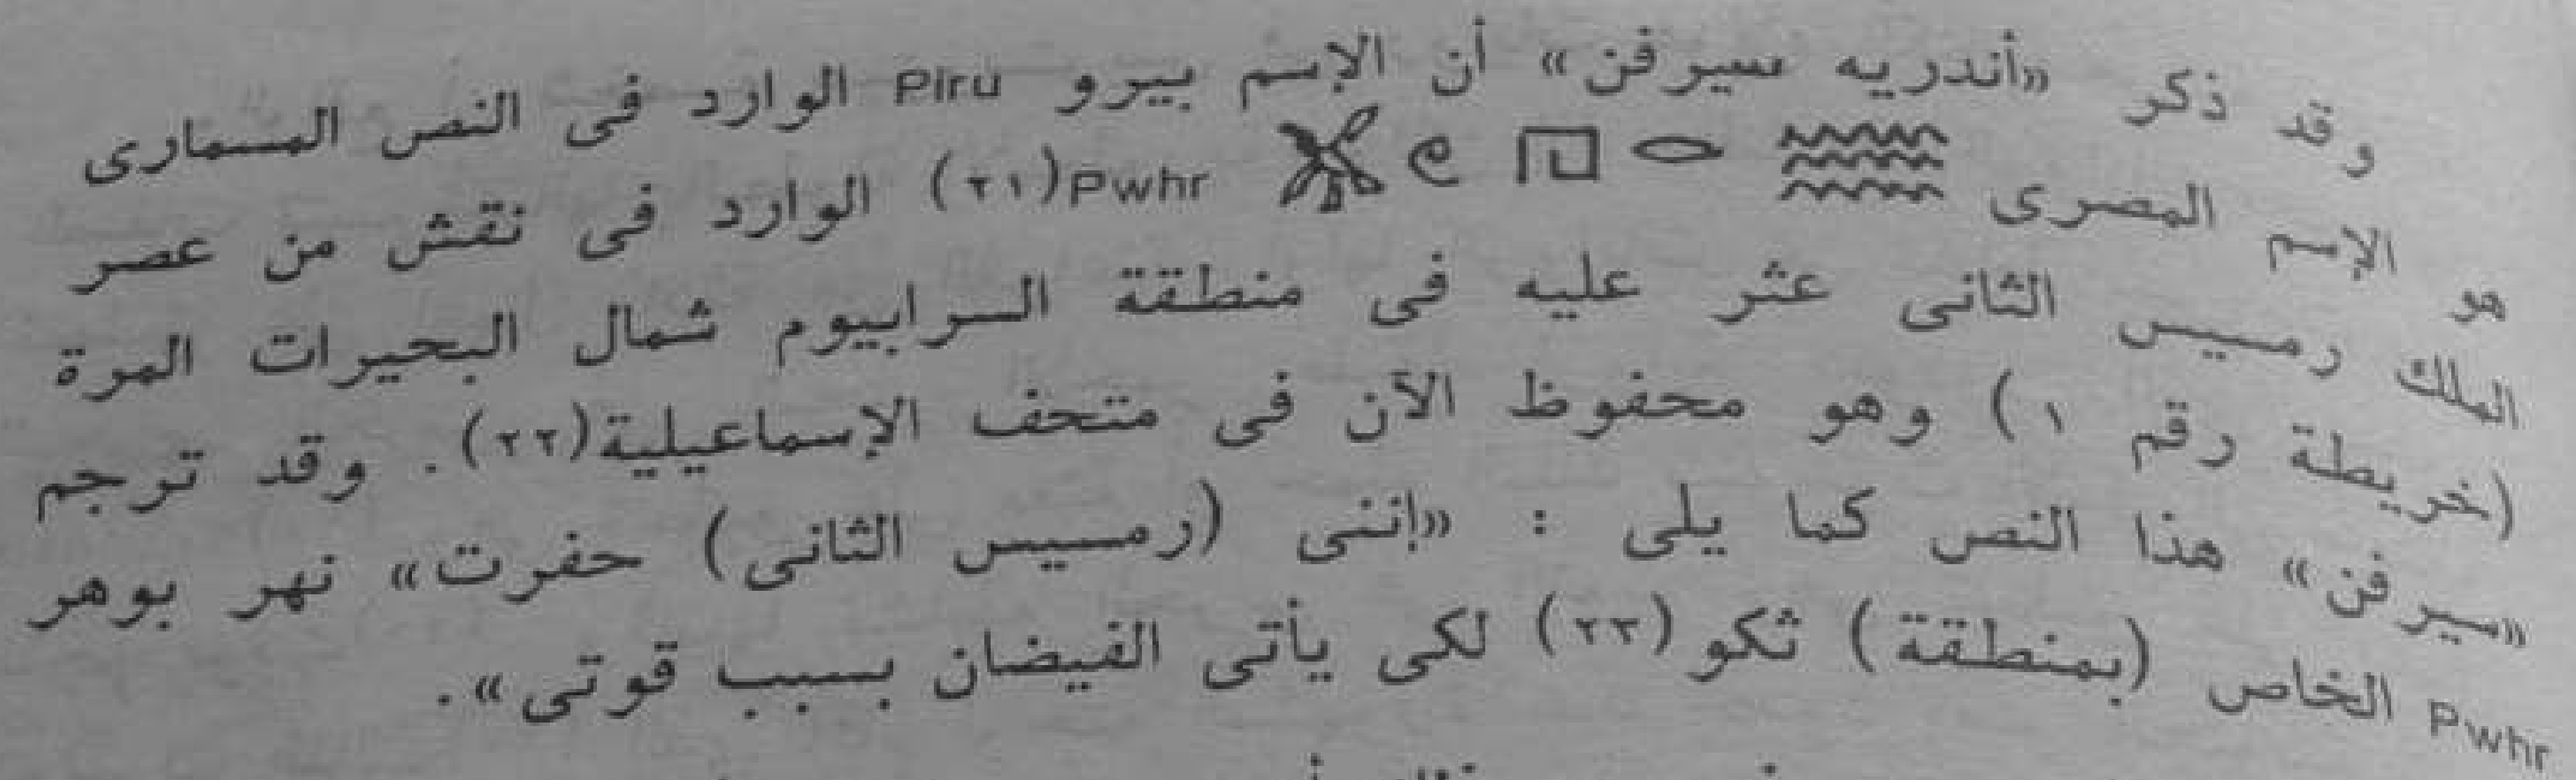 وقد ذكر «أندريه سيرفن» أن الإسم بيرو Piru الوارد فى النص المسمارى
هو الإسم المصرى Pwhr(٢١) الوارد فى نقش من عصر
الملك رمسيس الثانى عثر عليه فى منطقة السرابيوم شمال البحيرات المرة
(خريطة رقم ١) وهو محفوظ الآن فى متحف الإسماعيلية(٢٢). وقد ترجم
«سيرفن» هذا النص كما يلى : «إننى (رمسيس الثانى) حفرت» نهر بوهر
Pwhr الخاص (بمنطقة) ثكو(٢٣) لكى يأتى الفيضان بسبب قوتى».